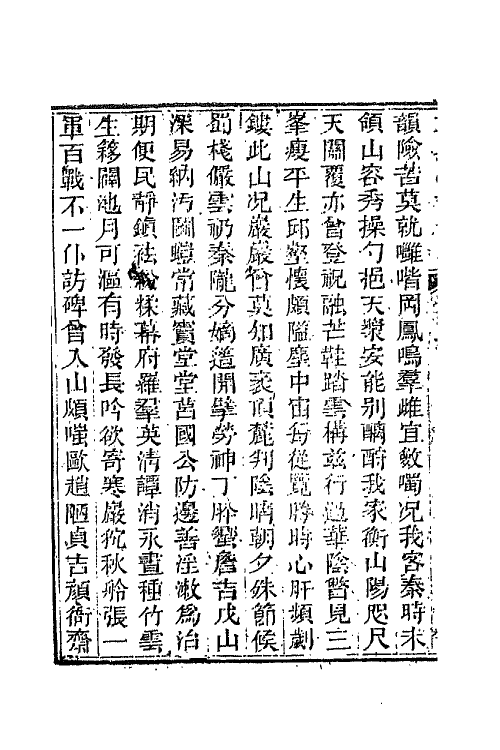 韻險苦莫就雝喈岡鳳鳴羣雌宜斂噣況我客秦時未
領山容秀操勺挹天漿安能别醨酧我家衡山陽咫尺
天關覆亦曾登祝融芒鞋踏雲構兹行過華陰瞥見三
峯瘦平生邱壑懷頗隘塵中宙每從覽勝時心肝頻劌
鏤此山況巖巖曾莫如廣袤頂麓判陰晴朝夕殊節候
蜀棧儼雲礽秦隴分嫡遒開擘勞神丁肸蠁詹吉戊山
深易納汚闞蟾常藏竇堂堂莒國公防邊善淫漱為治
期便民靜鎮袪粉糅幕府羅羣英淸譚消永晝種竹雲
生簃闢池月可漚有時發長吟欲寄寒巖䆓秋舲張一
軍百戰不一仆訪碑曾入山頗嗤歐趙陋貞吉顏衙齋